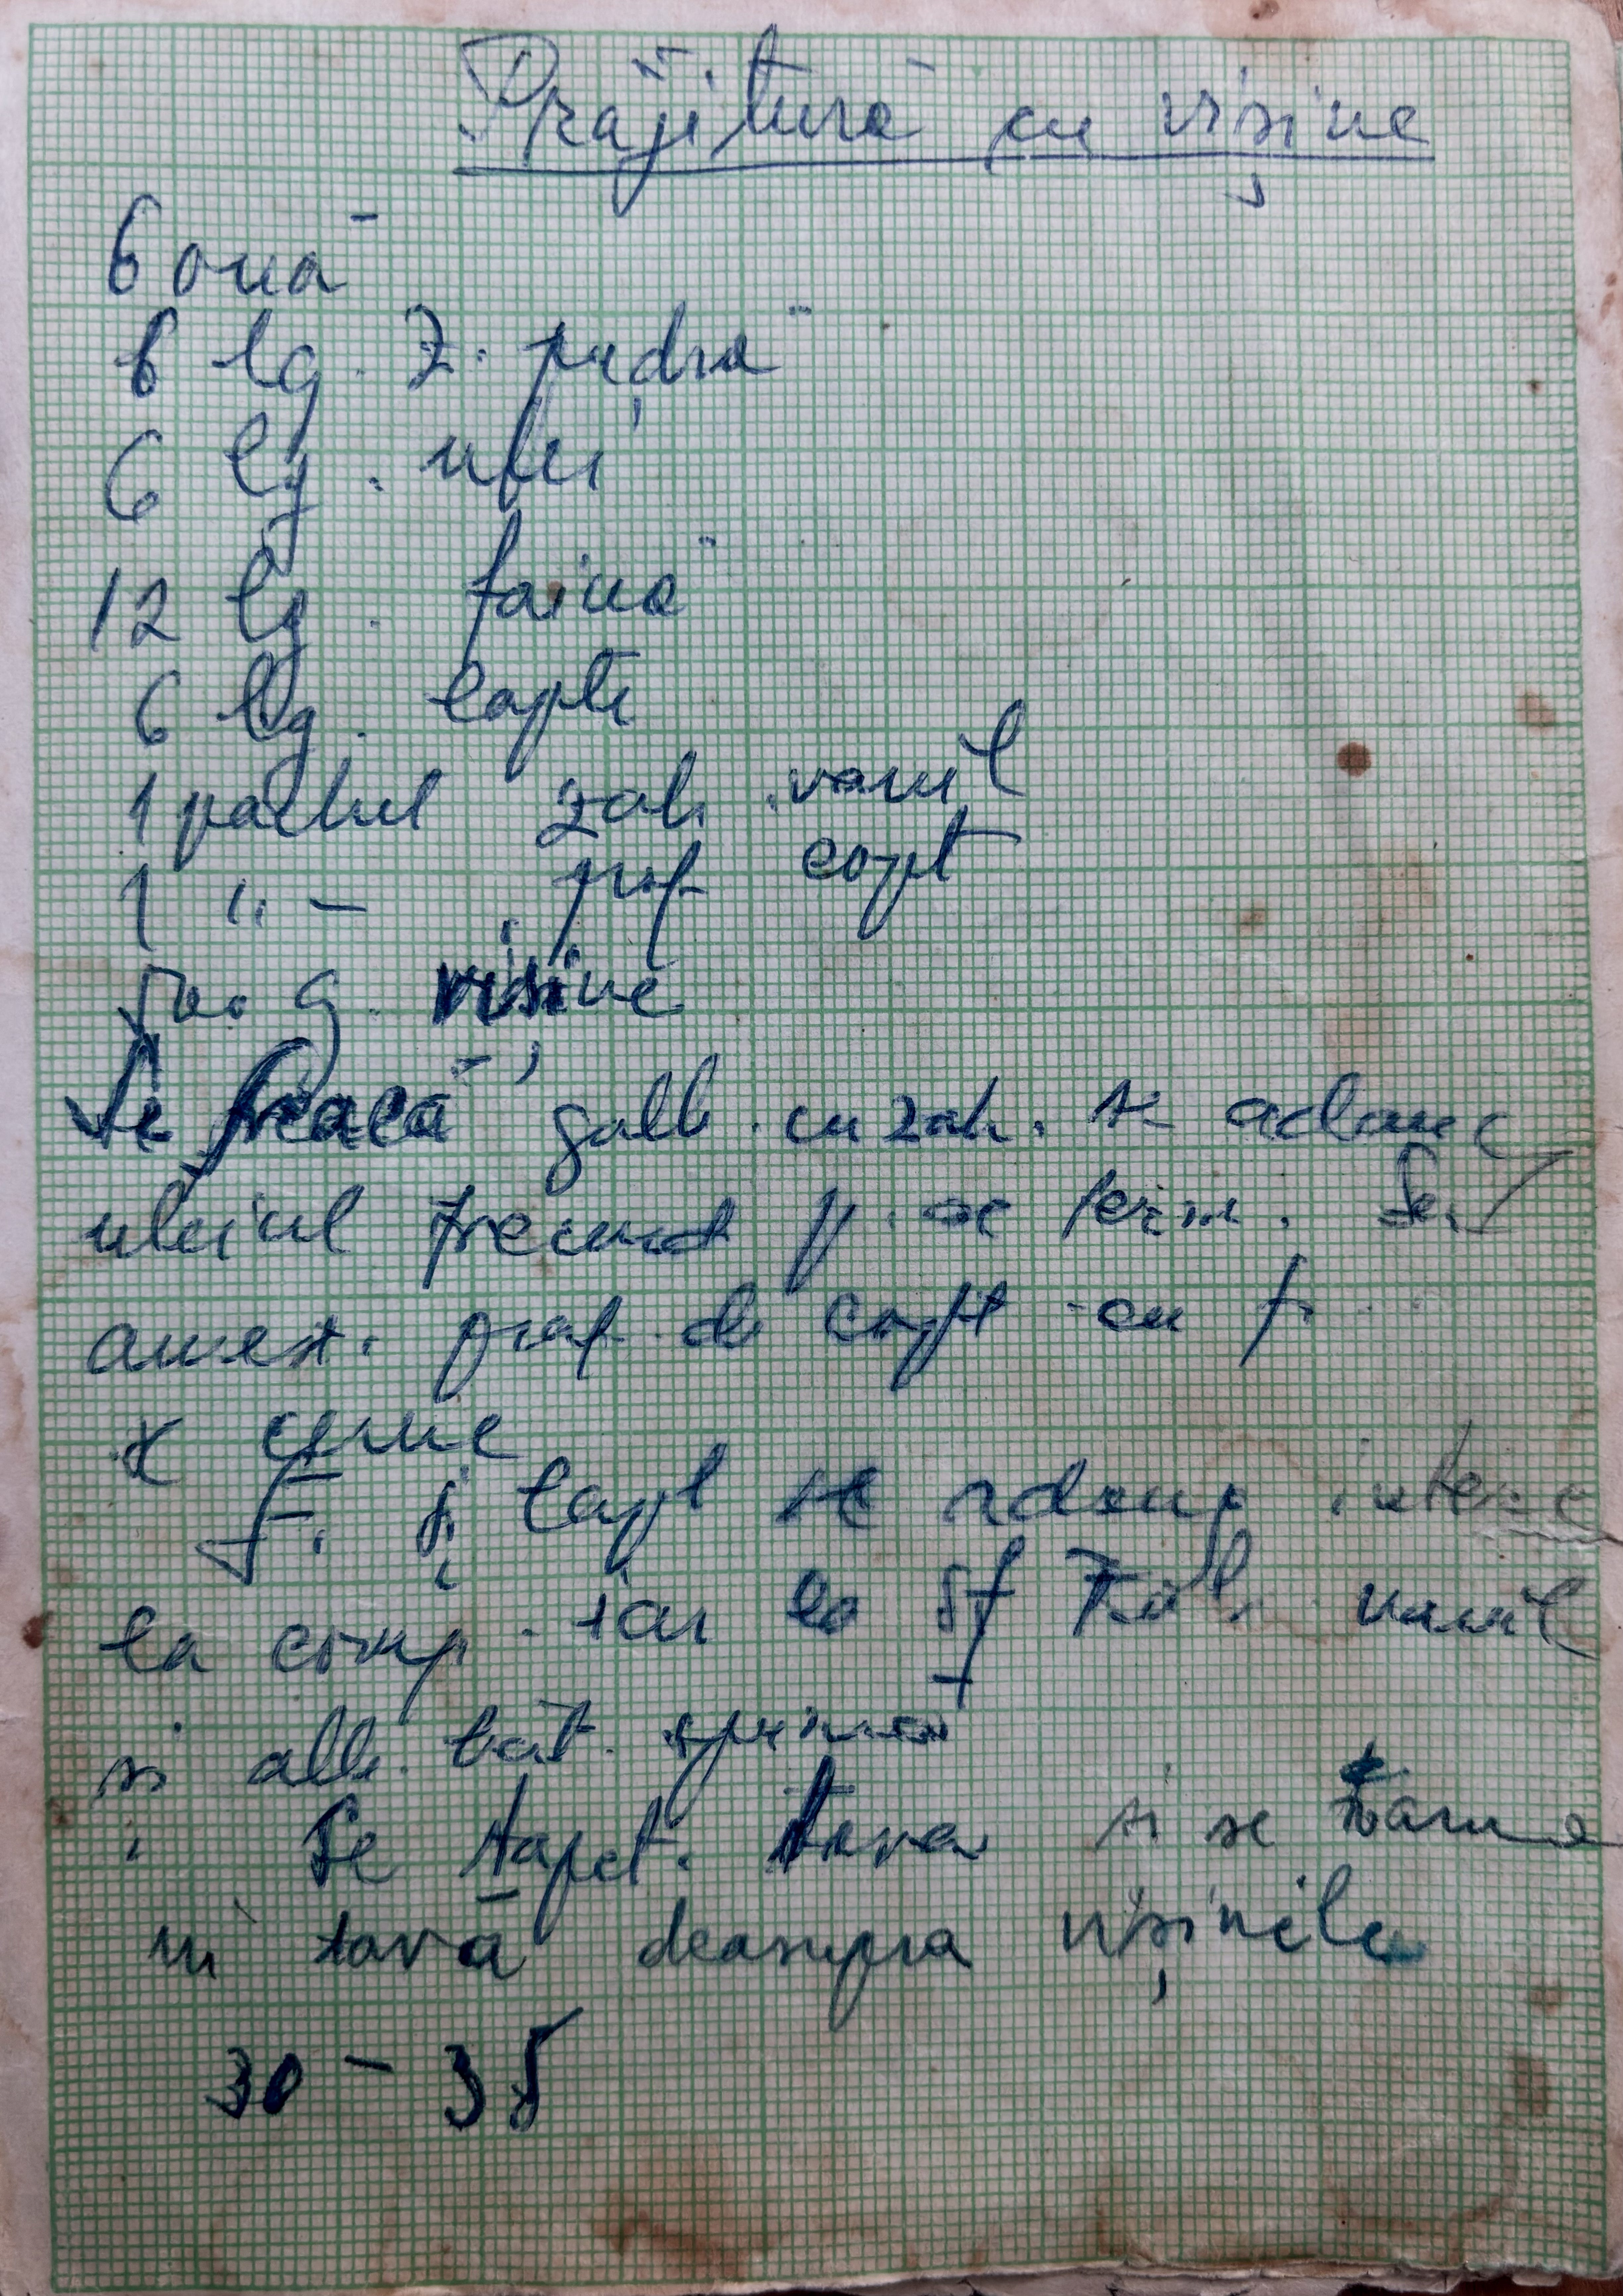 Prăjitură cu vișine
6 ouă
6 lg. z. pudră
6 lg. ulei
12 lg. faină
6 lg. lapte
1 pachet zah. vanil
1 " – praf copt
500 g. vișine
Se freacă galb. cu zah. se adaug
uleiul frecând p. se term. Se
amest. praf de copt cu f.
se cerne
F. și lapt se adaug
la comp. iar la sf zah. vanil
și alb. băt. spumă
Se tapet. tava si se toarnă
în tavă deasupra vișinile
30 – 35